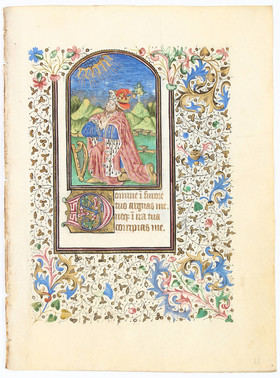 Domine ī furore
tuo arguas me.
neqȝ ī ira tua
corripias me.